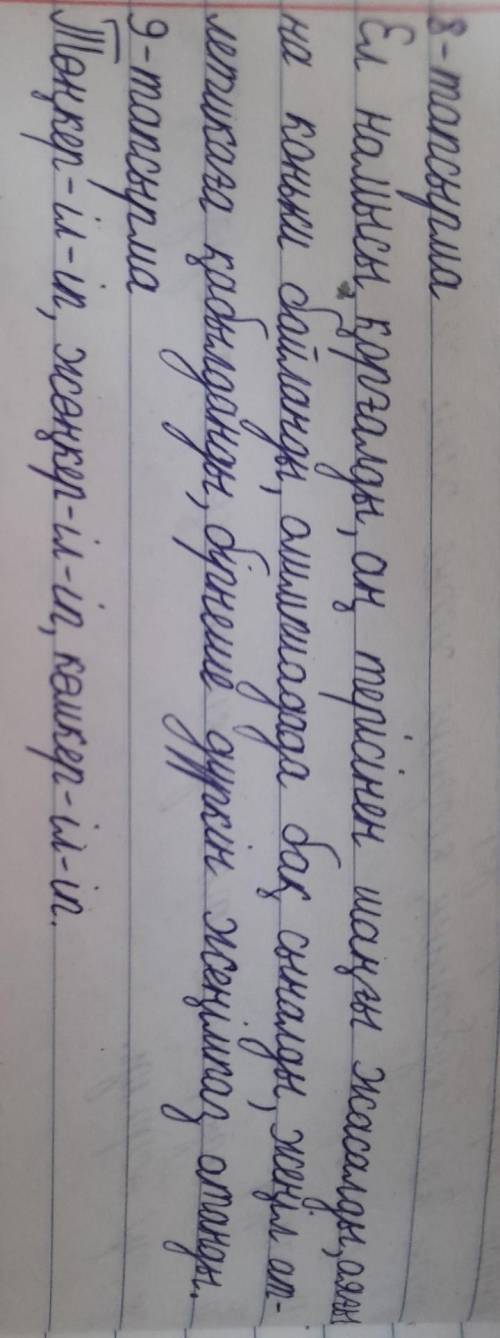 8-тапсырма
Ел намысы қорғалды, аң терісінен шаңғы жасалды, аяғы
на коньки байланды, олимпиадада бақ сыналды, жеңіл ат-
летикаға қабылданды, бірнеше дүркін жеңімпаз атанды.
9-тапсырма
Төңкер-іл-іп, жөңкер-іл-іп, көмкер-іл-іп.